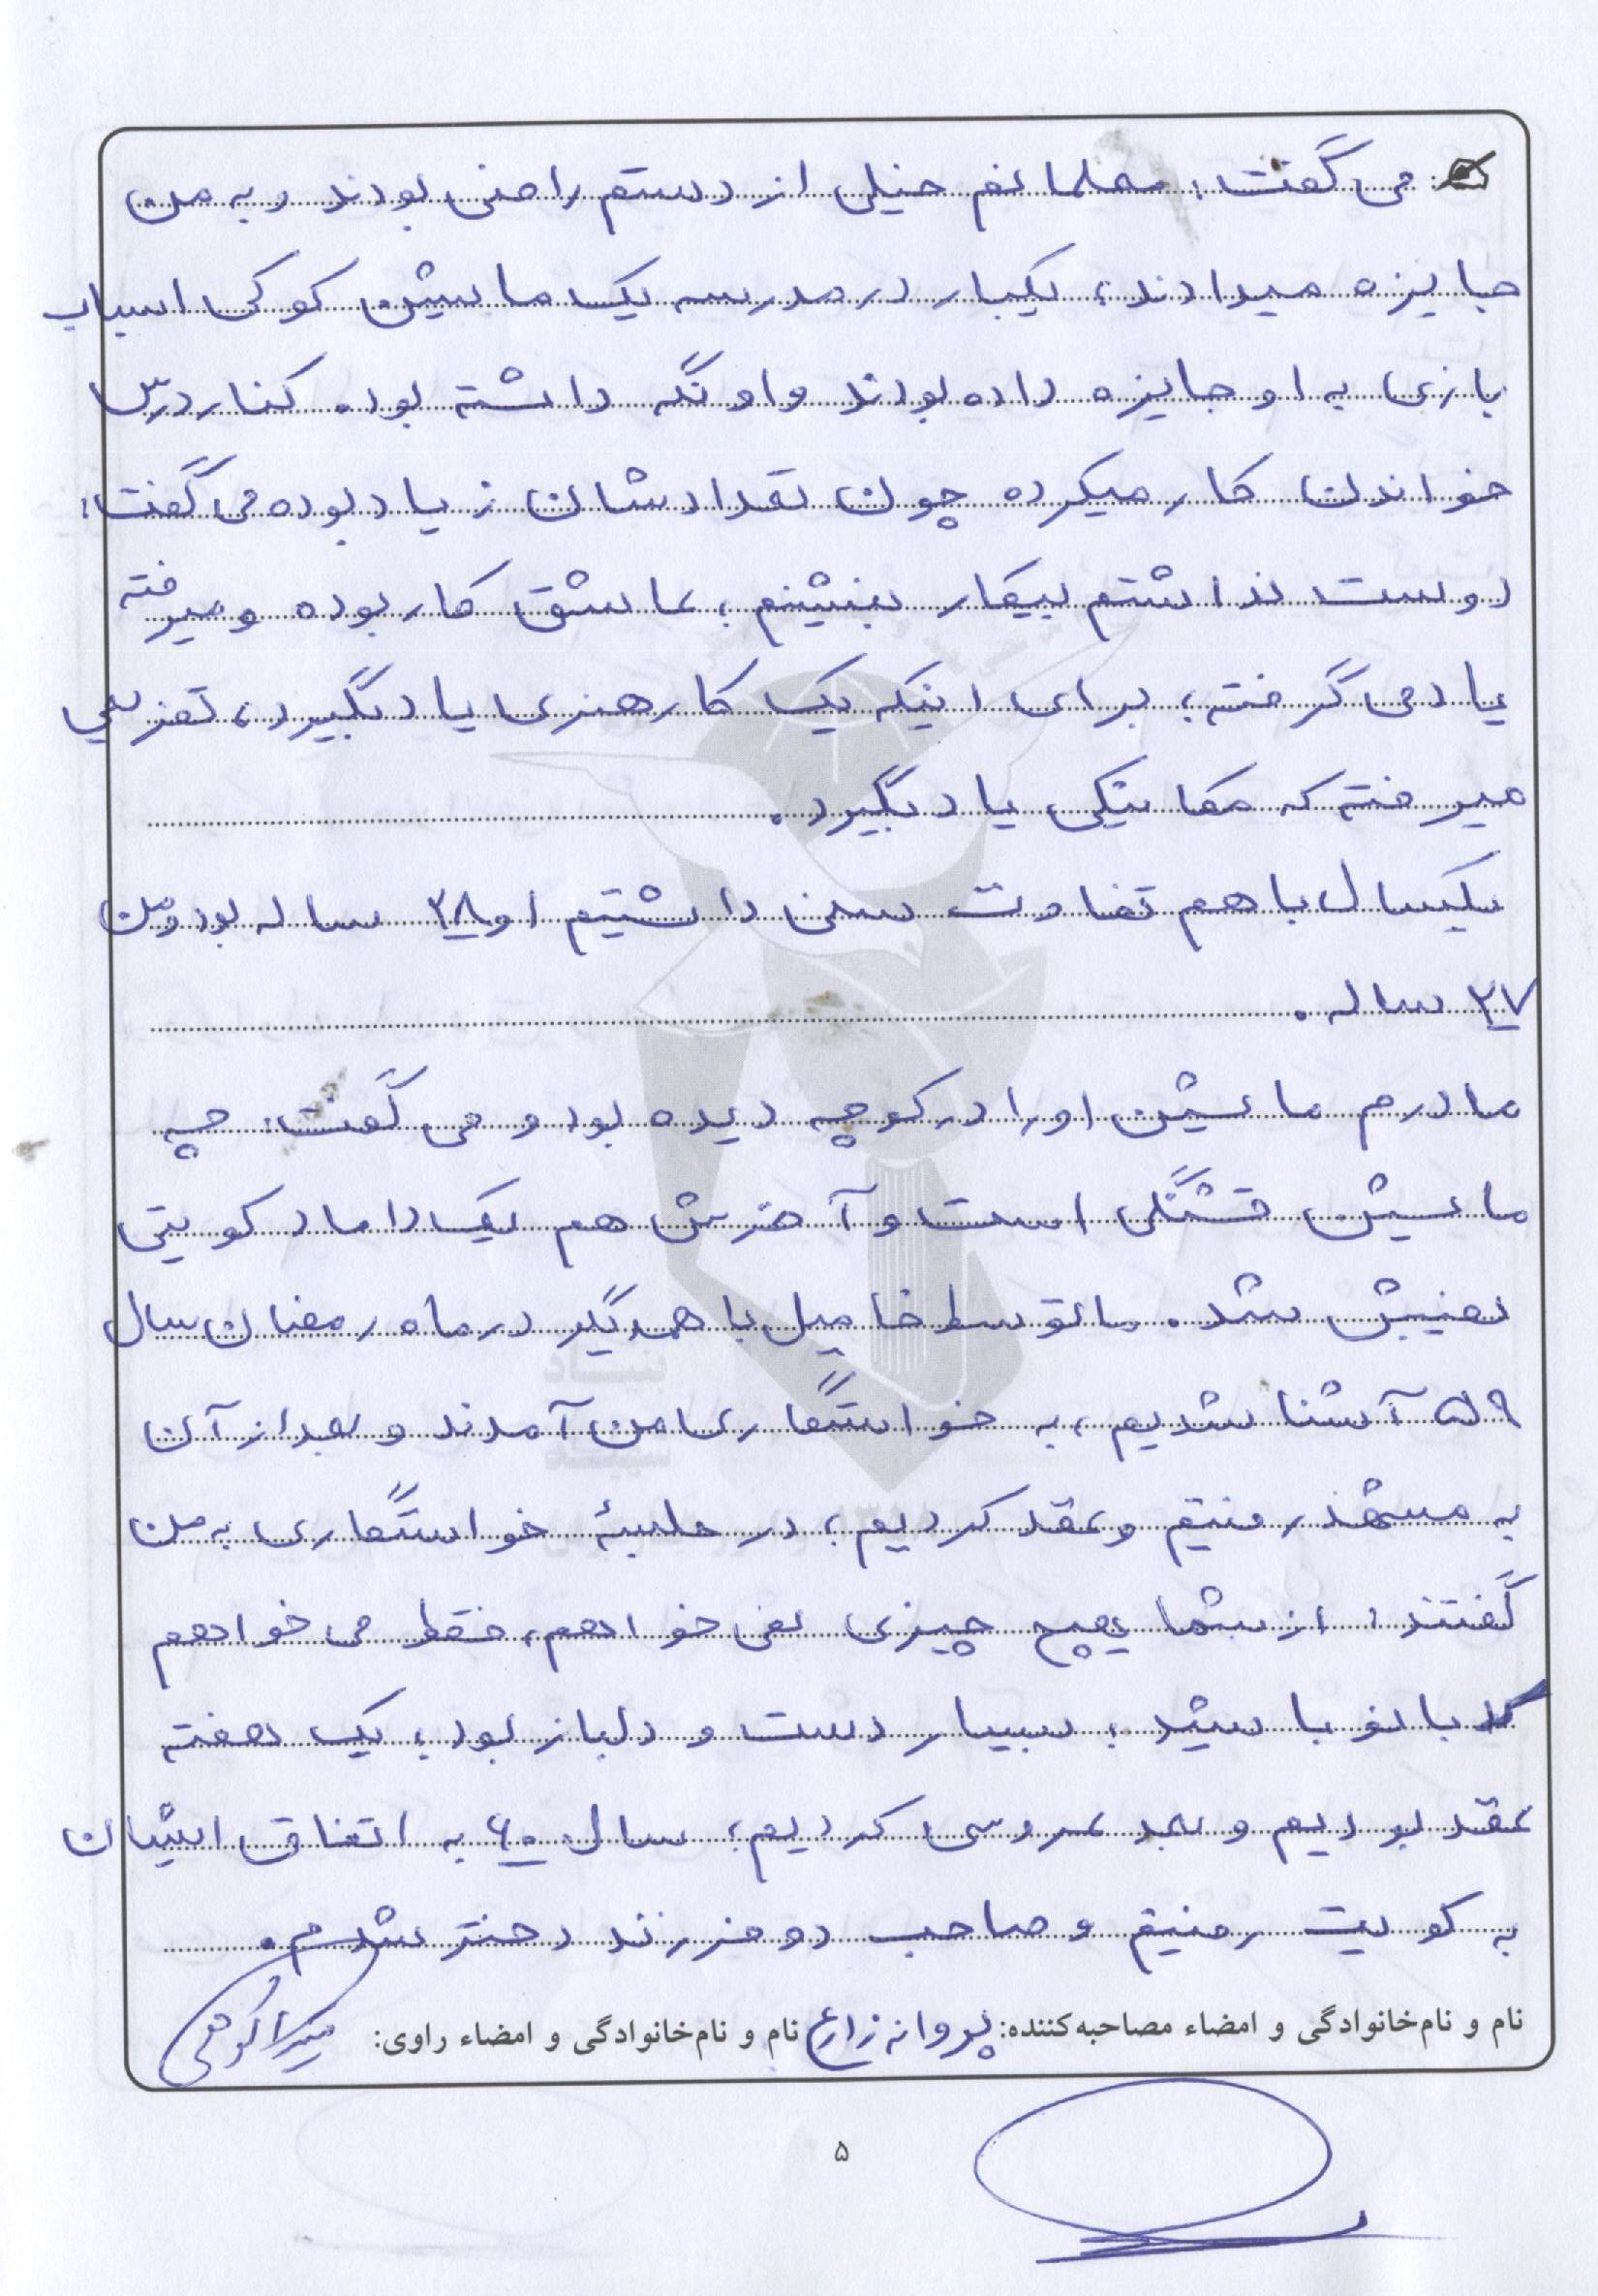 می گفت: معلمانم خیلی از دستم راضی بودند و به من
جایزه میدادند، یکبار در مدرسه یک ماشین کوکی اسباب
بازی به او جایزه داده بودند و او نگه داشته بود. کنار درس
خواندن کار میکرده چون تعدادشان زیاد بوده می گفت:
دوست نداشتم بیکار بنشینم؛ عاشق کار بوده و میرفته
یاد می گرفته؛ برای اینکه یک کار هنری یاد بگیرد، تعزیه می
میرفته که مکانیکی یاد بگیرد.
یکسال با هم تفاوت سنی داشتیم او ۲۸ ساله بود و من
۲۷ ساله.
مادرم ماشین او را در کوچه دیده بود و می گفت: چه
ماشین قشنگی است و آخرش هم یک داماد کویتی
نصیبش شد. ما توسط فامیل با همدیگر در ماه رمضان سال
۵۹ آشنا شدیم، به خواستگاری من آمدند و بعد از آن
به مشهد رفتیم و عقد کردیم؛ در جلسهٔ خواستگاری به من
گفتند: از شما هیچ چیزی نمی خواهم، فقط می خواهم
کدبانو باشید؛ بسیار دست و دلباز بود؛ یک هفته
عقد بودیم و بعد عروسی کردیم؛ سال ۶۰ به اتفاق ایشان
به کویت رفتیم و صاحب دو فرزند دختر شدم.
نام و نام‌خانوادگی و امضاء مصاحبه‌کننده: پروانه زارع نام و نام‌خانوادگی و امضاء راوی:
۵